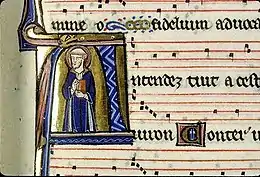 fidelium aduoca
ntendez tuit a cest
uiuon conter u